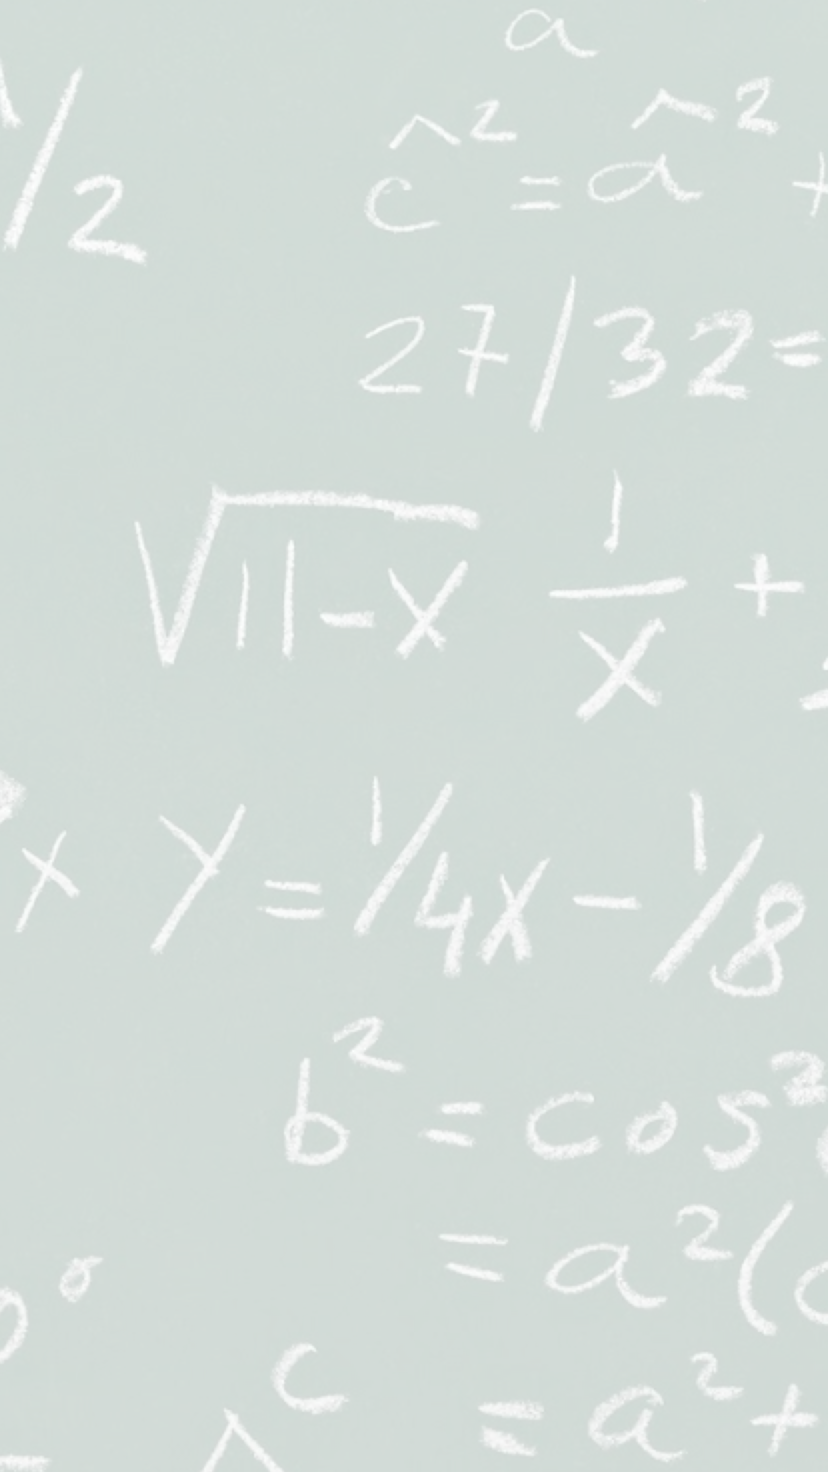 a
/2 ĉ² = â² +
27/32=
√11-x 1/x +
x y = 1/4x - 1/8
b² = cos²
= a²(
0°
c = a² +